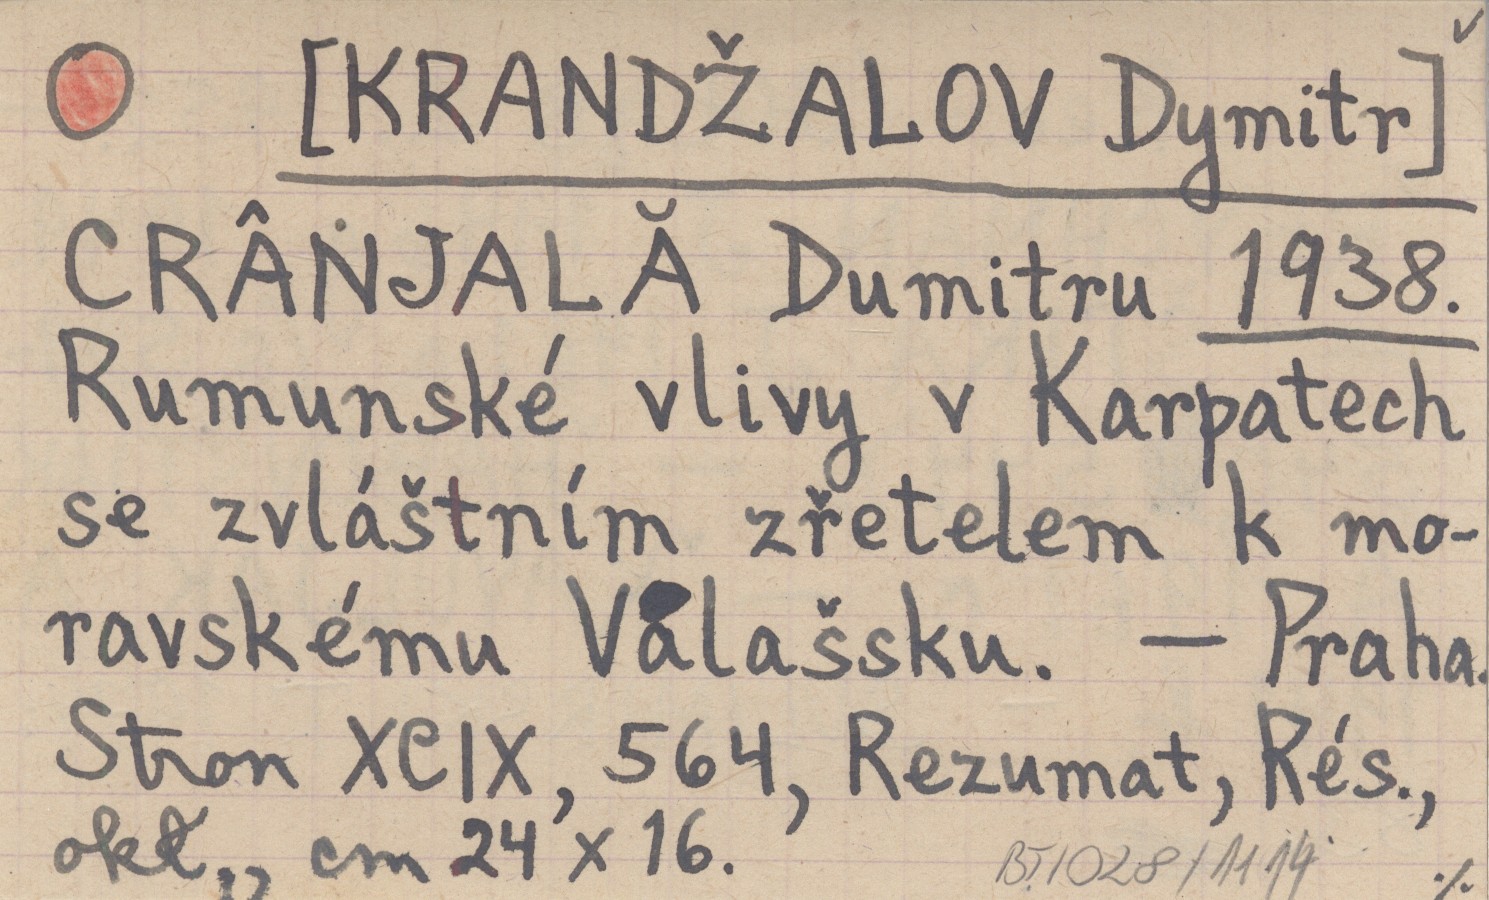 [KRANDŽALOV Dymitr]
CRÂNJALĂ Dumitru 1938.
Rumunské vlivy v Karpatech
se zvláštním zřetelem k mo-
ravskému Valašsku. — Praha.
Stron XCIX, 564, Rezumat, Rés.,
okł., cm 24 x 16.
BT/1028/1114 ./.